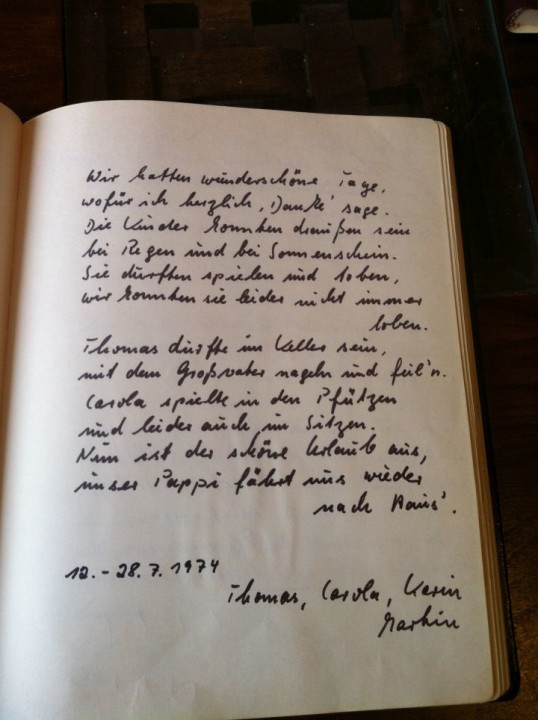 Wir hatten wunderschöne Tage,
wofür ich herzlich, Danke' sage.
Die Kinder konnten draußen sein
bei Regen und bei Sonnenschein.
Sie durften spielen und toben,
wir konnten sie leider nicht immer
loben.
Thomas durfte im Keller sein,
mit dem Großvater nageln und feil'n.
Carola spielte in den Pfützen
und leider auch im Sitzen.
Nun ist der schöne Urlaub aus,
unser Pappi fährt uns wieder
nach Haus'.
12. - 28. 7. 1974
Thomas, Carola, Karin
Martin